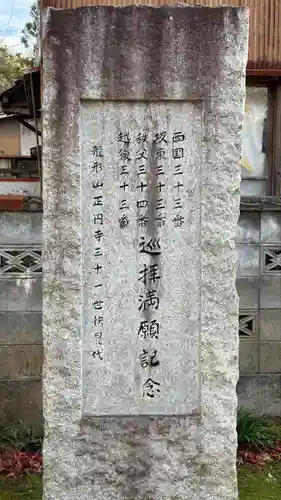 西国三十三番
坂東三十三番
秩父三十四番
越後三十三番
巡拝満願記念
龍形山正円寺三十一世
代